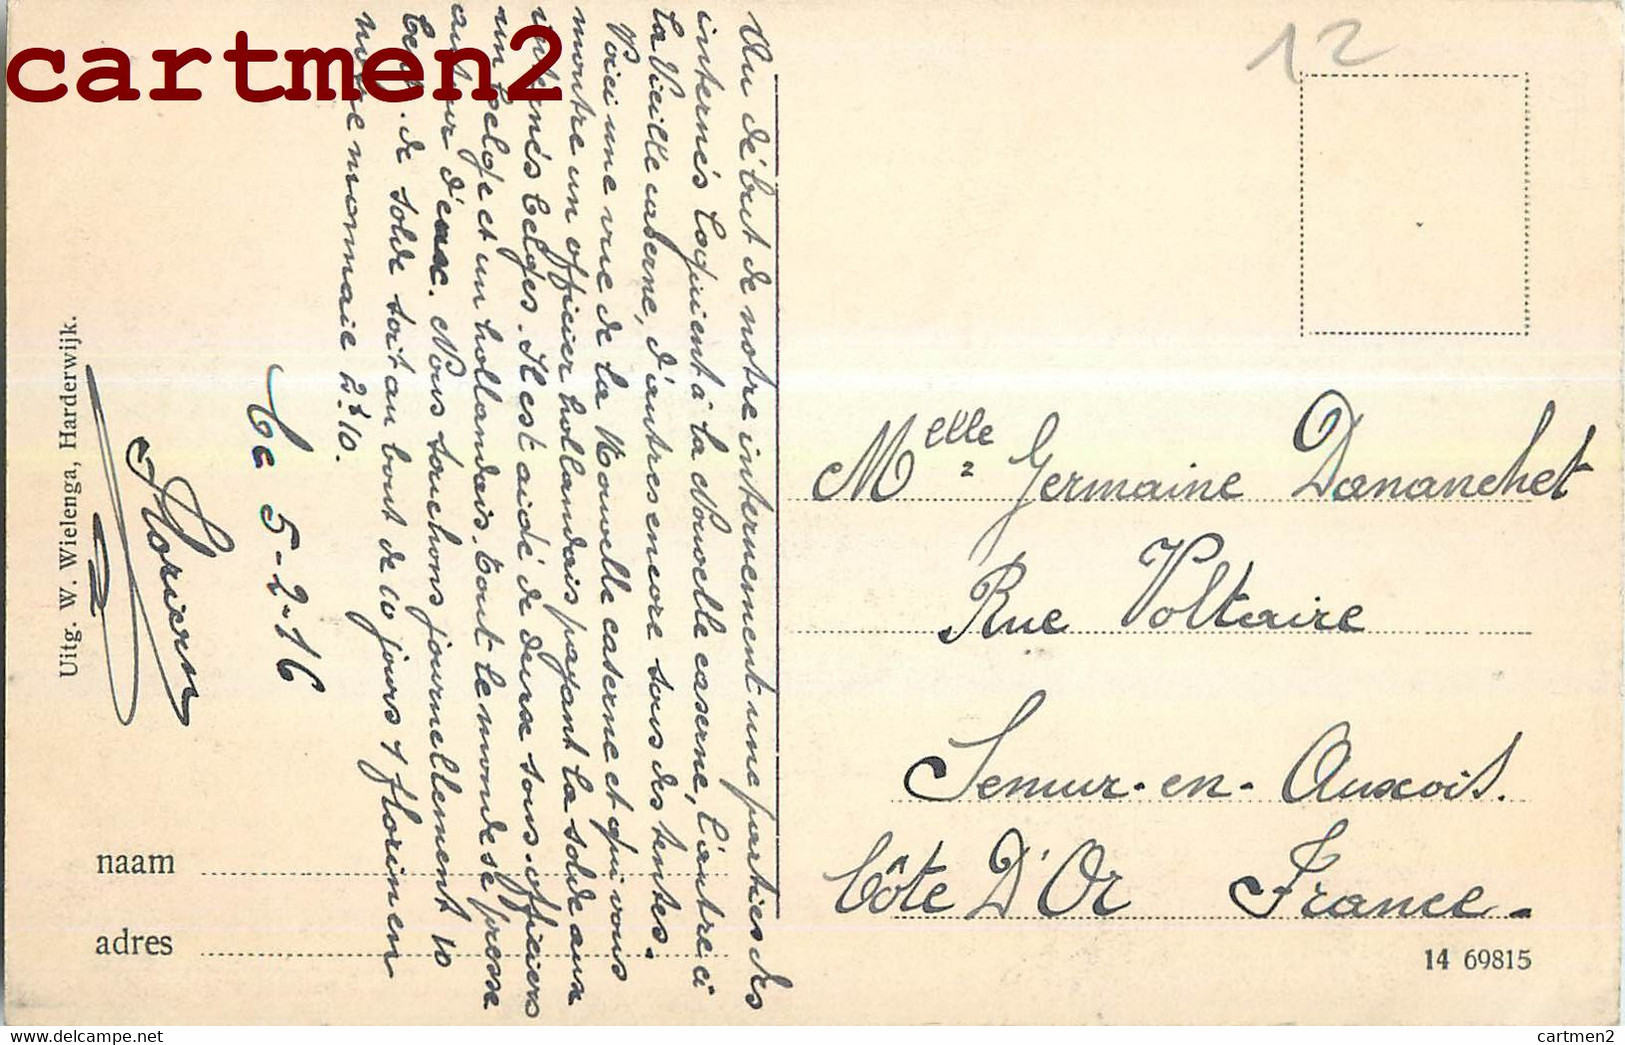 cartmen2
12
Au début de notre internement une parties des
internés loquient à la Nouvelle caserne, l'autre ici
la Vieille caserne, d'autres encore sous des tentes.
Voici une vue de la Nouvelle caserne et qui vous
montre un officier hollandais payant la solde aux
internés belges. Il est aidé de deux sous-officiers
un belge et un hollandais. Tout le monde se presse
autour d'eux. Nous touchons journellement 10
de solde soit au bout de 10 jours 1 florin en
monnaie 2f10.
Ce 5-2-16
Uitg. W. Wielenga, Harderwijk.
naam
adres
Melle Germaine Dananchet
Rue Voltaire
Semur-en-Auxois.
Côte D'Or France.
14 69815
www.delcampe.net
cartmen2